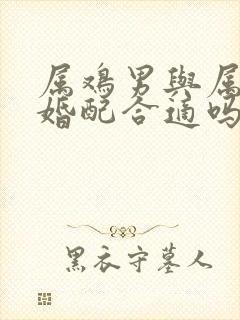 属鸡男與属
婚配合適吗
黑衣守墓人